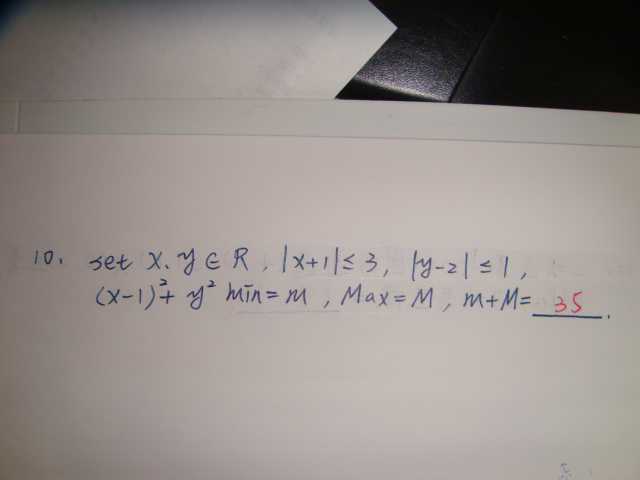 10. set x、y ∈ R , |x+1| ≤ 3, |y-2| ≤ 1 ,
(x-1)²+ y² min = m , Max = M , m+M= 35 .